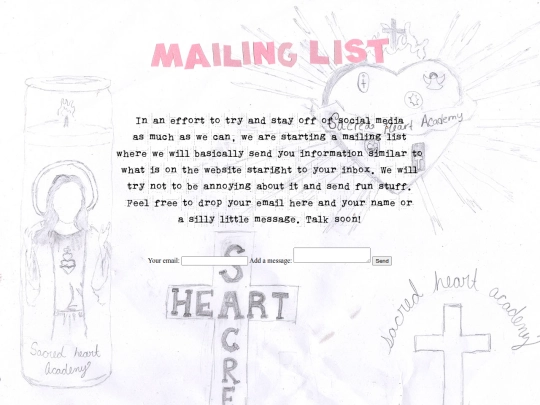 MAILING LIST
In an effort to try and stay off of social media
as much as we can, we are starting a mailing list
where we will basically send you information similar to
what is on the website staright to your inbox. We will
try not to be annoying about it and send fun stuff.
Feel free to drop your email here and your name or
a silly little message. Talk soon!
Sacred Heart Academy
Your email:
Add a message:
Send
SACRE
HEART
sacred heart academy
Sacred heart
Academy